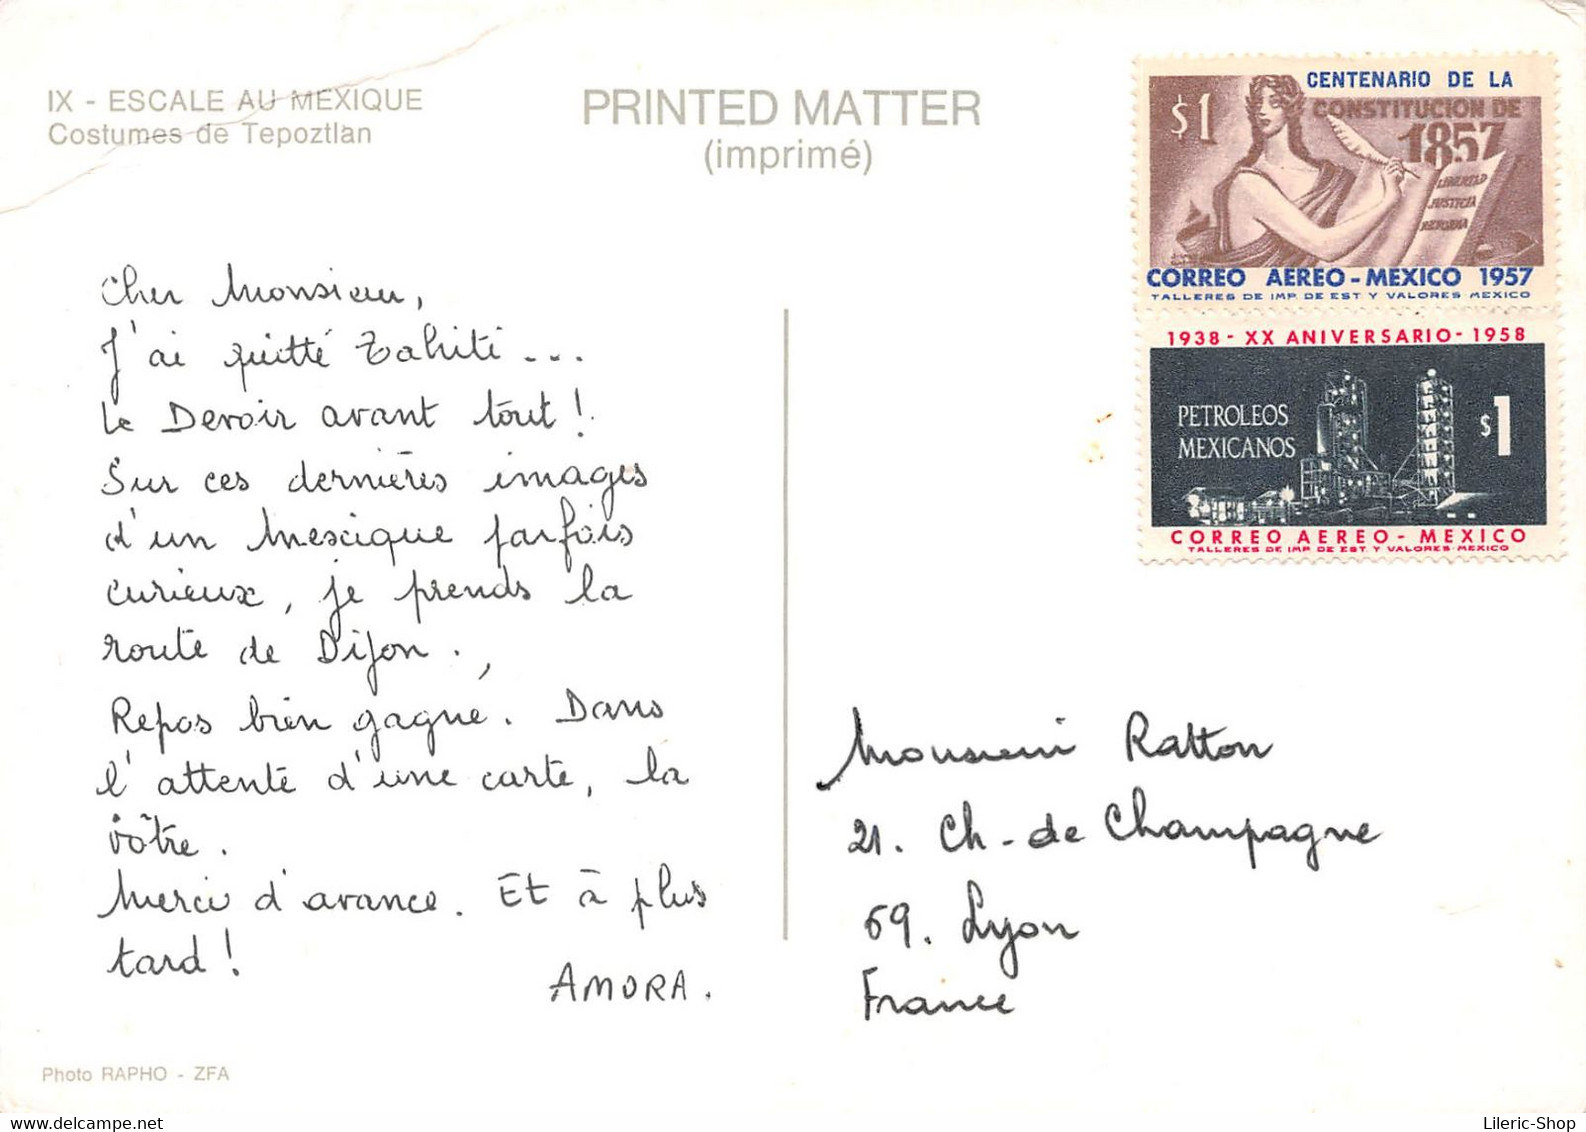 IX - ESCALE AU MEXIQUE
Costumes de Tepoztlan
PRINTED MATTER
(imprimé)
CENTENARIO DE LA
CONSTITUCION DE
1857
$1
LIBERTAD
JUSTICIA
REFORMA
CORREO AEREO - MEXICO 1957
TALLERES DE IMP. DE EST. Y VALORES-MEXICO
1938 - XX ANIVERSARIO - 1958
PETROLEOS
MEXICANOS
$1
CORREO AEREO - MEXICO
TALLERES DE IMP. DE EST. Y VALORES-MEXICO
Cher Monsieur,
J'ai quitté Tahiti ...
Le Devoir avant tout !
Sur ces dernières images
d'un Mexique parfois
curieux, je prends la
route de Dijon.,
Repos bien gagné. Dans
l'attente d'une carte, la
vôtre.
Merci d'avance. Et à plus
tard !
AMORA.
Monsieur Ratton
21. Ch. de Champagne
69. Lyon
France
Photo RAPHO - ZFA
Lileric-Shop